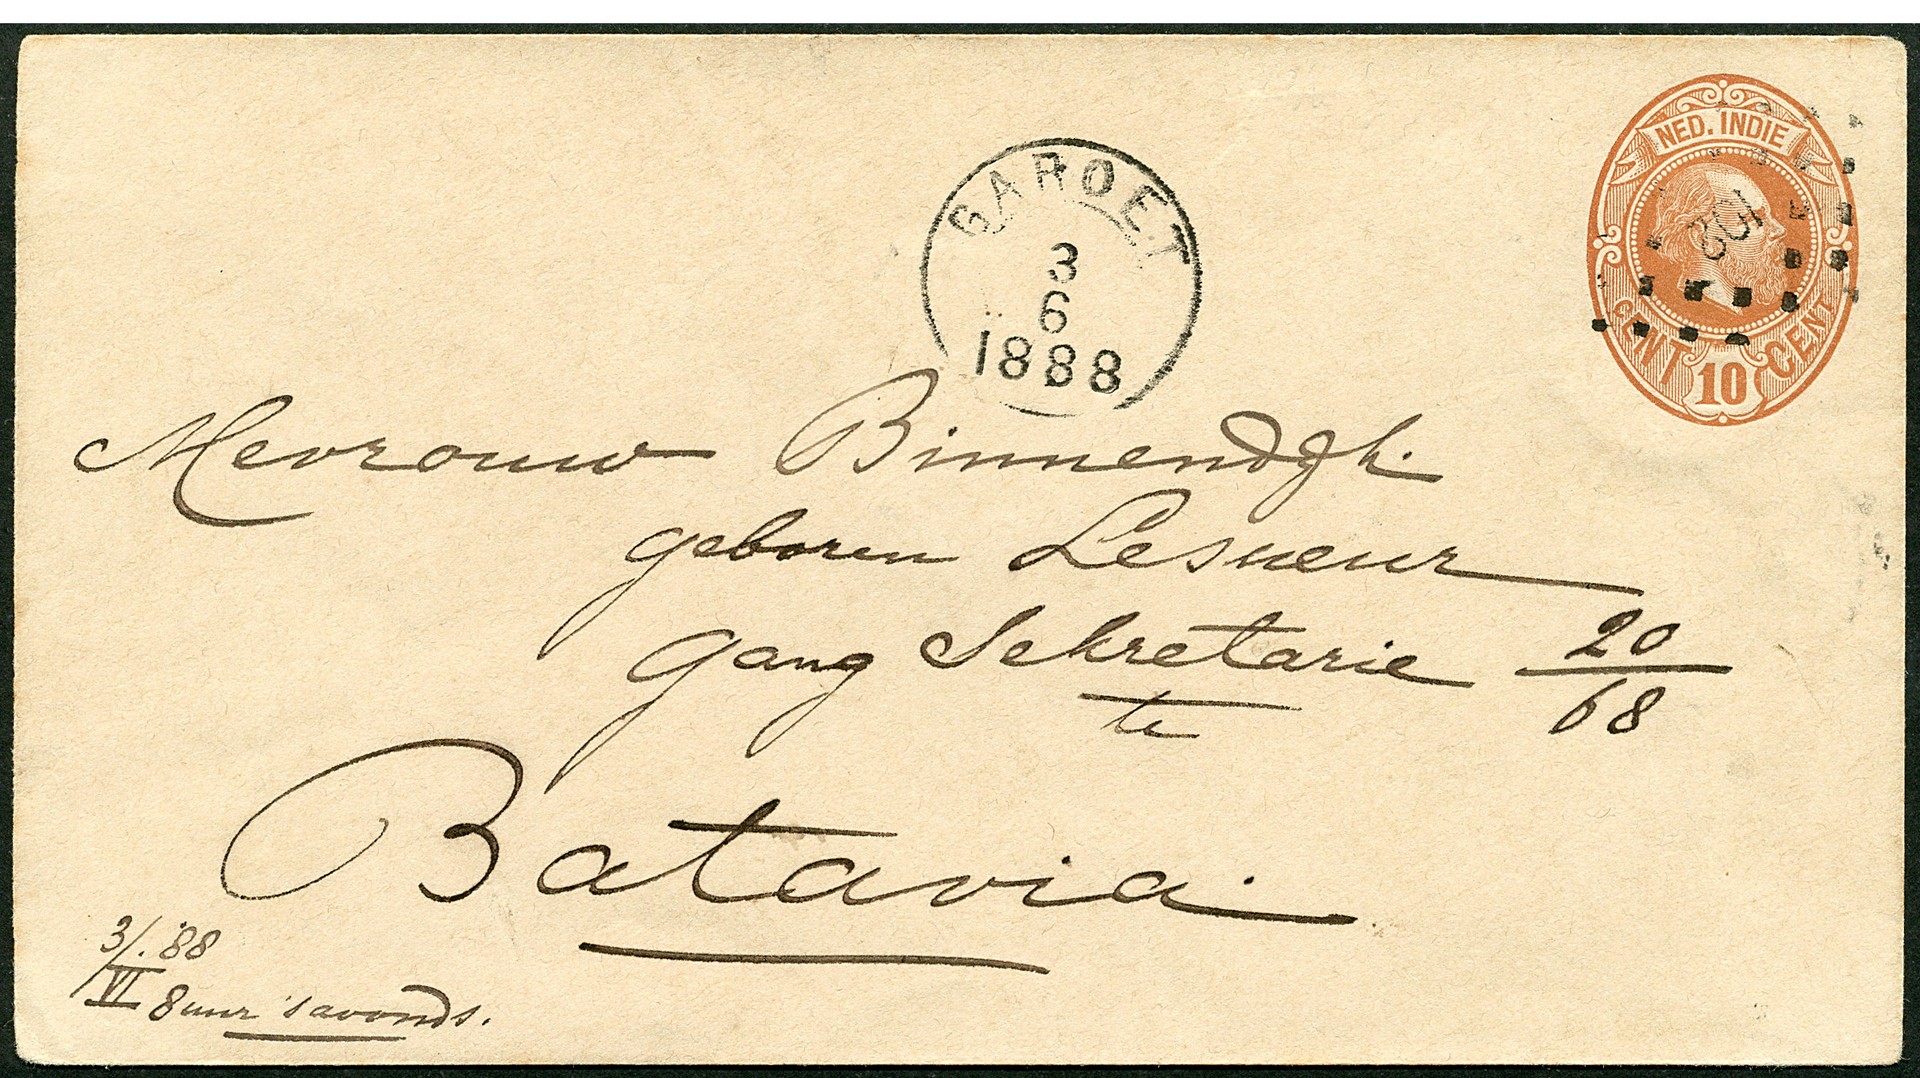 NED. INDIE
CENT 10 CENT
102
GAROET
3
6
1888
Mevrouw Binnendijk.
geboren Lesueur
gang Sekretarie 20/68
te
Batavia.
3/VI. '88
8 uur 's avonds.